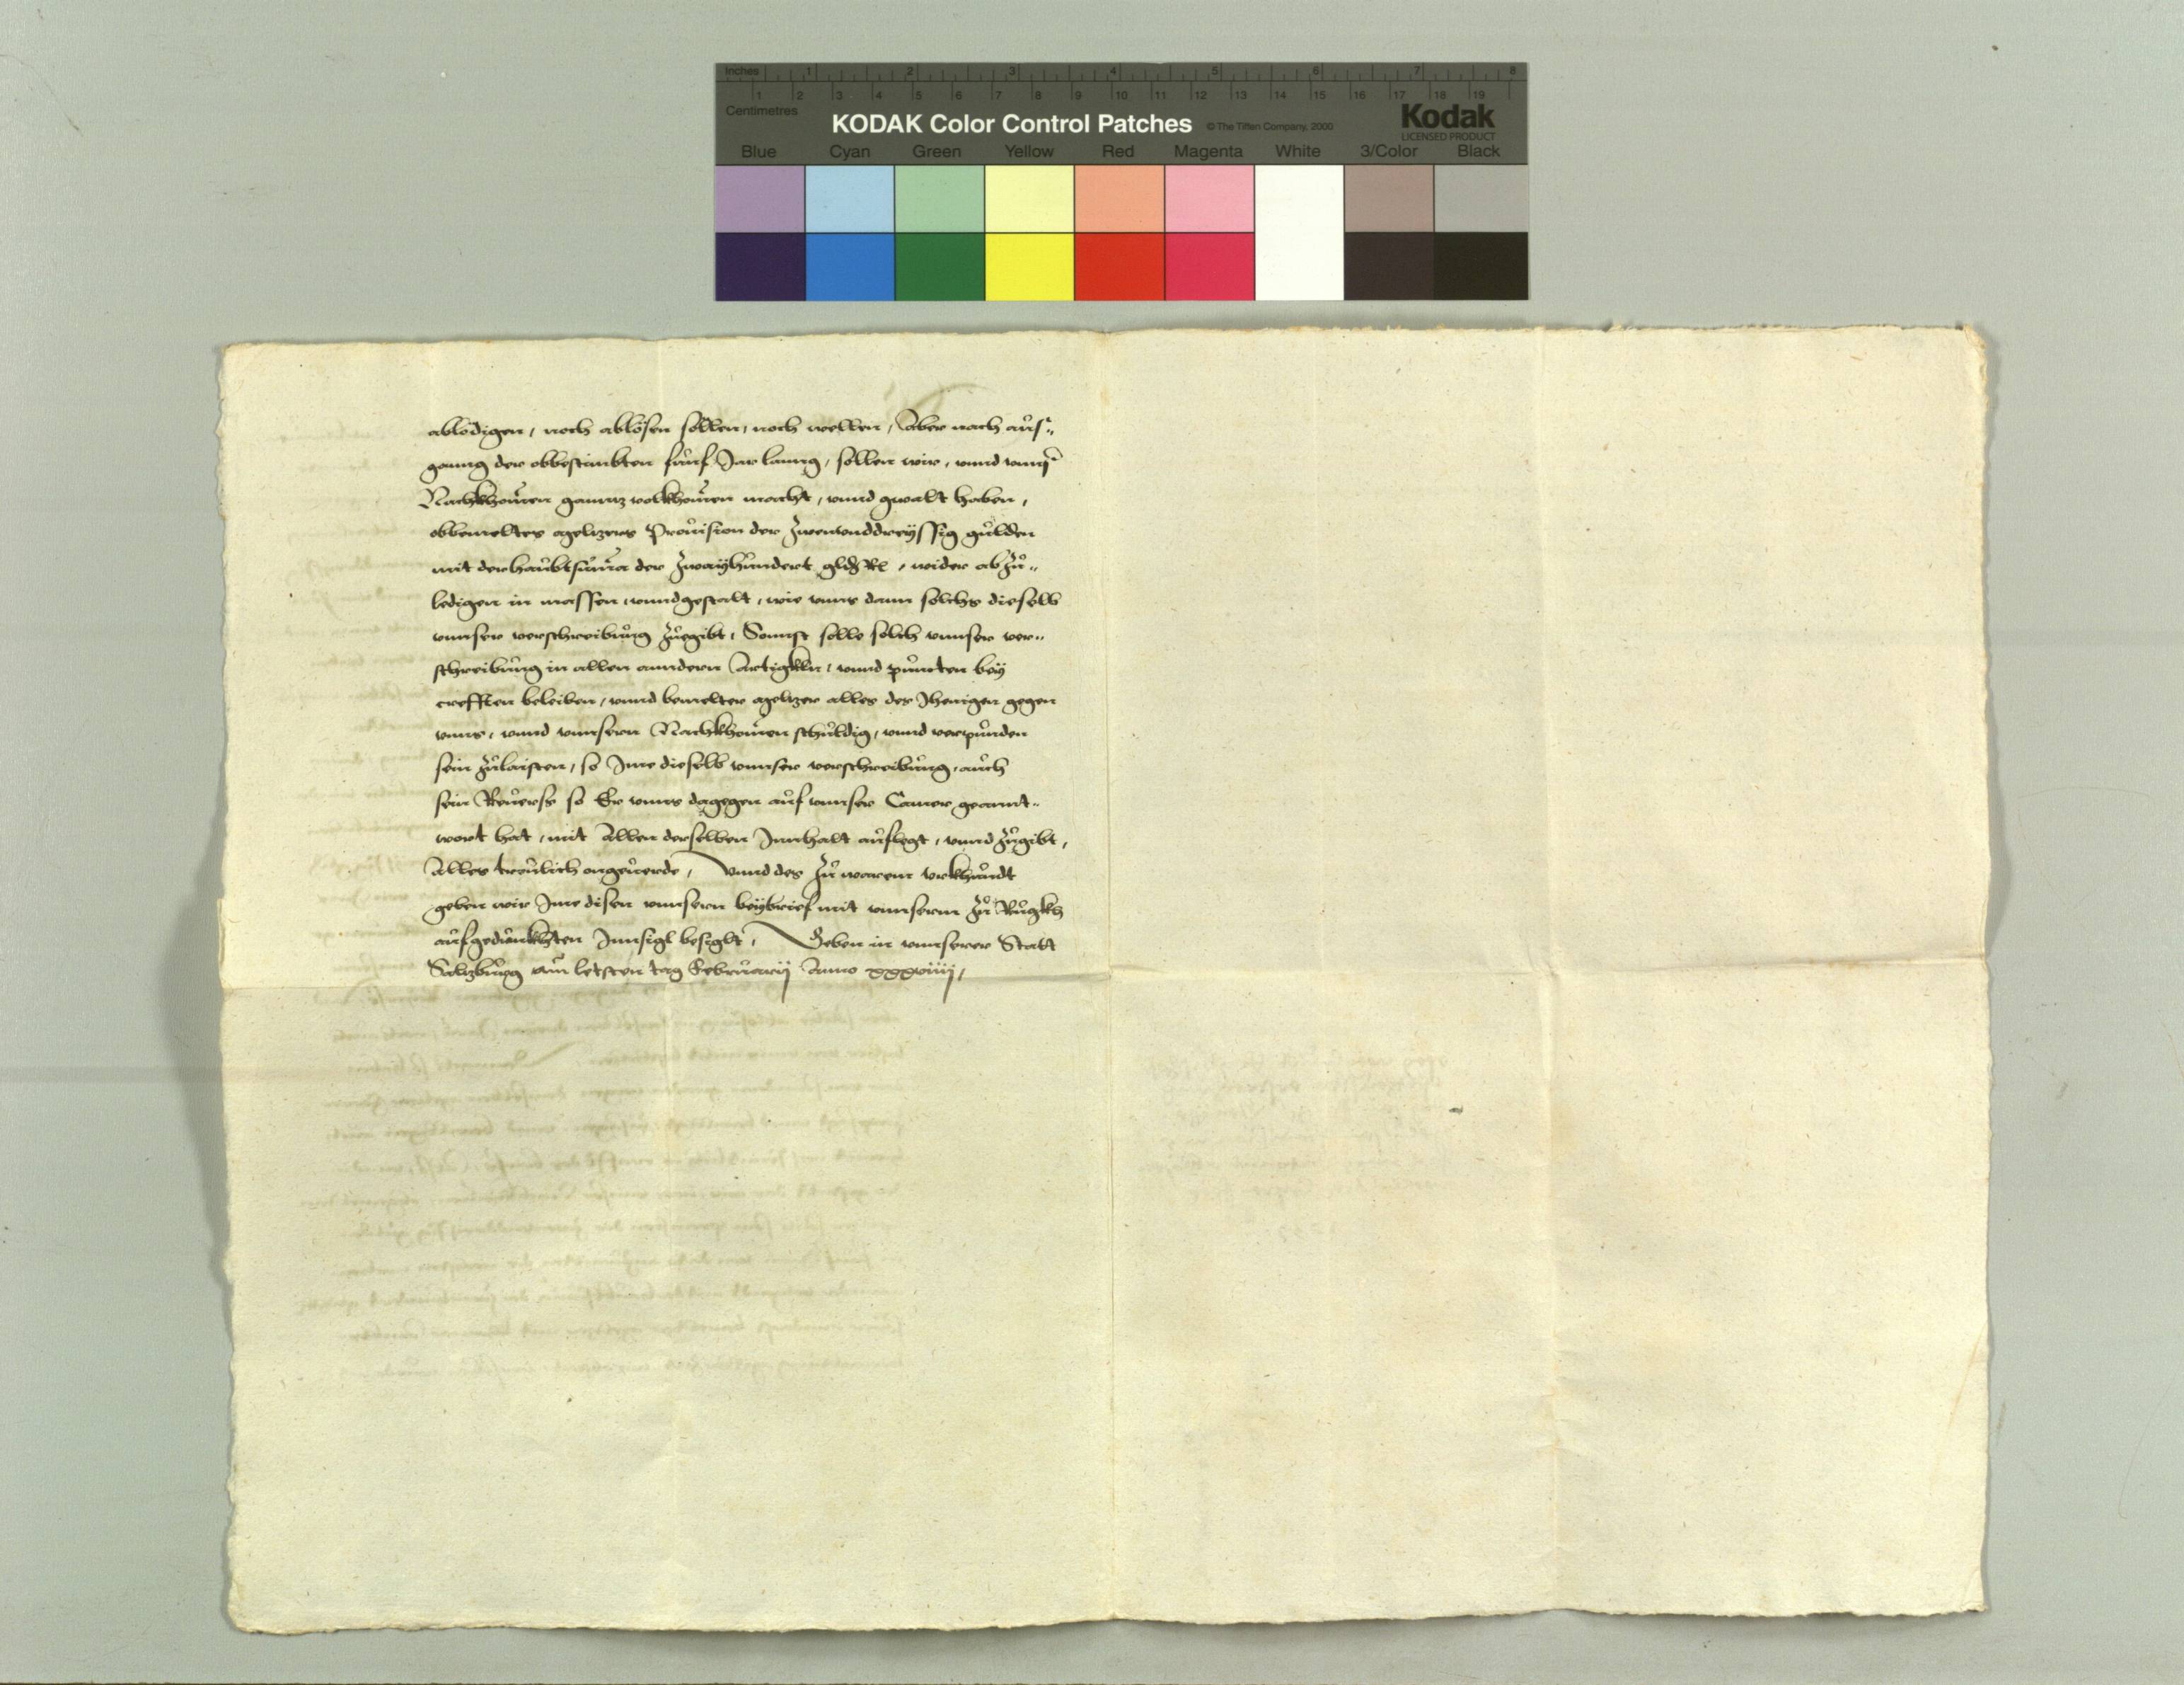 Inches 1 2 3 4 5 6 7 8
1 2 3 4 5 6 7 8 9 10 11 12 13 14 15 16 17 18 19
Centimetres
KODAK Color Control Patches © The Tiffen Company, 2000 Kodak
LICENSED PRODUCT
Blue Cyan Green Yellow Red Magenta White 3/Color Black
abledigen, noch ablösen sollen, noch wellen, Aber nach aůs„
ganng der obbestimbten fünf Jar lanng, sollen wir, vnnd vnnser
Nachkhomen ganntz volkhomen macht, vnnd gwalt haben,
obbemeltes Provision der Zwenvnddreÿssig gůlden
mit der haůbtsuma der Zwaÿhůndert , wider abZů„
ledigen in massen vnnd gestalt, wie vnns dann solchs dieselb
vnnser verschreibůng Zůegibt, Sonnst solle solch vnnser ver„
schreibůng in allen anndern Artigkln, vnnd půncten beÿ
crefften beleiben, vnnd bemelter alles des Jhenigen gegen
vnns, vnnd vnnsern Nachkhomen schůldig, vnnd verpůnden
sein Zůlaisten, so Jme dieselb vnnser verschreibůng, aůch
sein Reůerss so Er vnns dagegen aůf vnnser Camer geannt„
wort hat, mit Allen derselben Jnnhalt aůflegt, vnnd Zůgibt,
Alles treůlich ongeůerde, Vnnd des Zů warem vrkhůndt
geben wir Jme disen vnnsern beÿbrief mit vnnserm Zů Růgkh
aůfgedrůckhten Jnnsigl besiglt, Geben in vnnserer Statt
Saltzbůrg am letsten tag Februarij Anno xxxviiij,